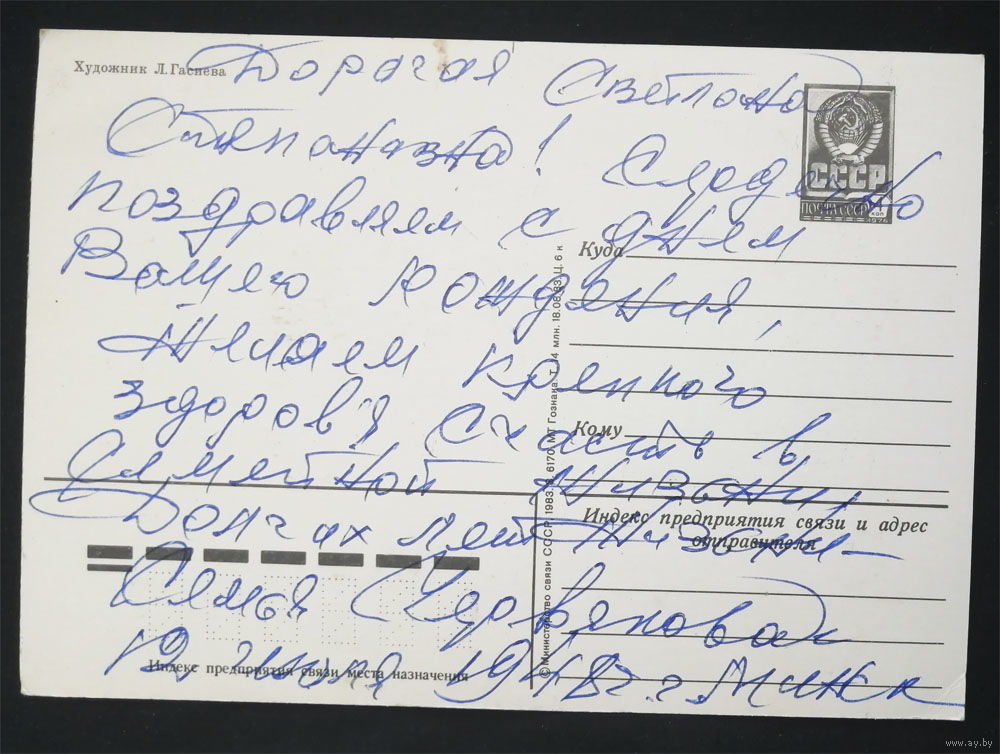 Художник Л.Гасиева
Дорогая Светлана
Степановна! Сердечно
поздравляем с днем
Вашего рождения,
Желаем крепкого
здоров'я счастя в
Семейной жизни,
Долгих лет жизни—
Семья Червяковых
г. Минск
СССР
ПОЧТА СССР
КОП
1976
Куда
Кому
Индекс предприятия связи и адрес
отправителя
Индекс предприятия связи места назначения
© Министерство связи СССР. 1983. З. 6170. МТ Гознака. Т. 14 млн. 18.08.83. Ц. 6 к.
www.ay.by